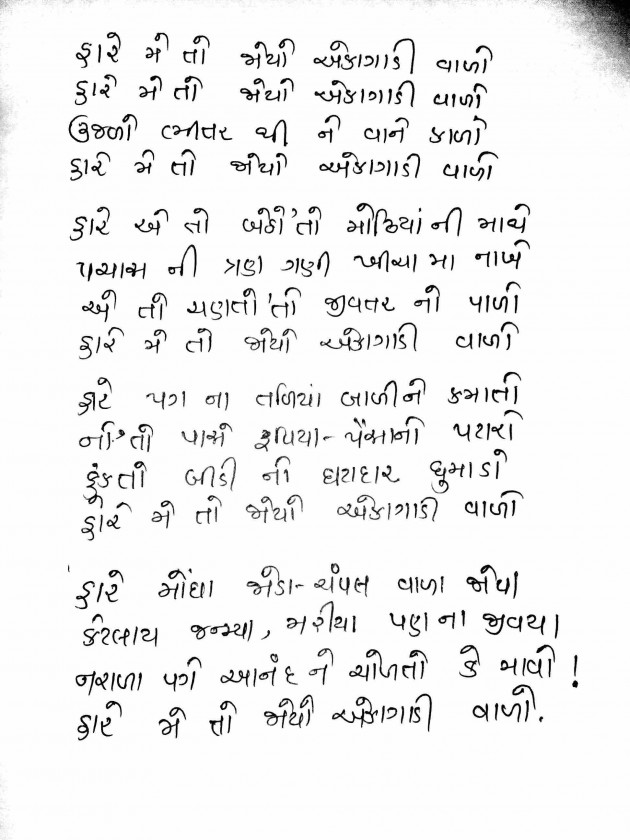 હારે મે તો જોયો એકાગાડી વાળો
હારે મે તો જોયો એકાગાડી વાળો
ઉજળો ભીતર થી ને વાને કાળો
હારે મે તો જોયો એકાગાડી વાળો
હારે એ તો બેઠો'તો મોઠિયાં ની માથે
પચાસ ની ત્રણ ગણી ખીચા મા નાખે
એ તો ચણતો'તો જીવતર નો પાળો
હારે મે તો જોયો એકાગાડી વાળો
હારે પગ ના તળિયાં બાળીને કમાતો
નો'તો પાસે રૂપિયા-પૈસાનો પટારો
ફૂંકતો બીડી નો ઘટાદાર ધુમાડો
હારે મે તો જોયો એકાગાડી વાળો
હારે મોંઘા જોડા-ચંપલ વાળા જોયા
કેટલાય જન્મ્યા, મરીયા પણ ના જીવયા
નરાળા પગે આનંદ ને ચોળતો કે માવો!
હારે મે તો જોયો એકાગાડી વાળો.